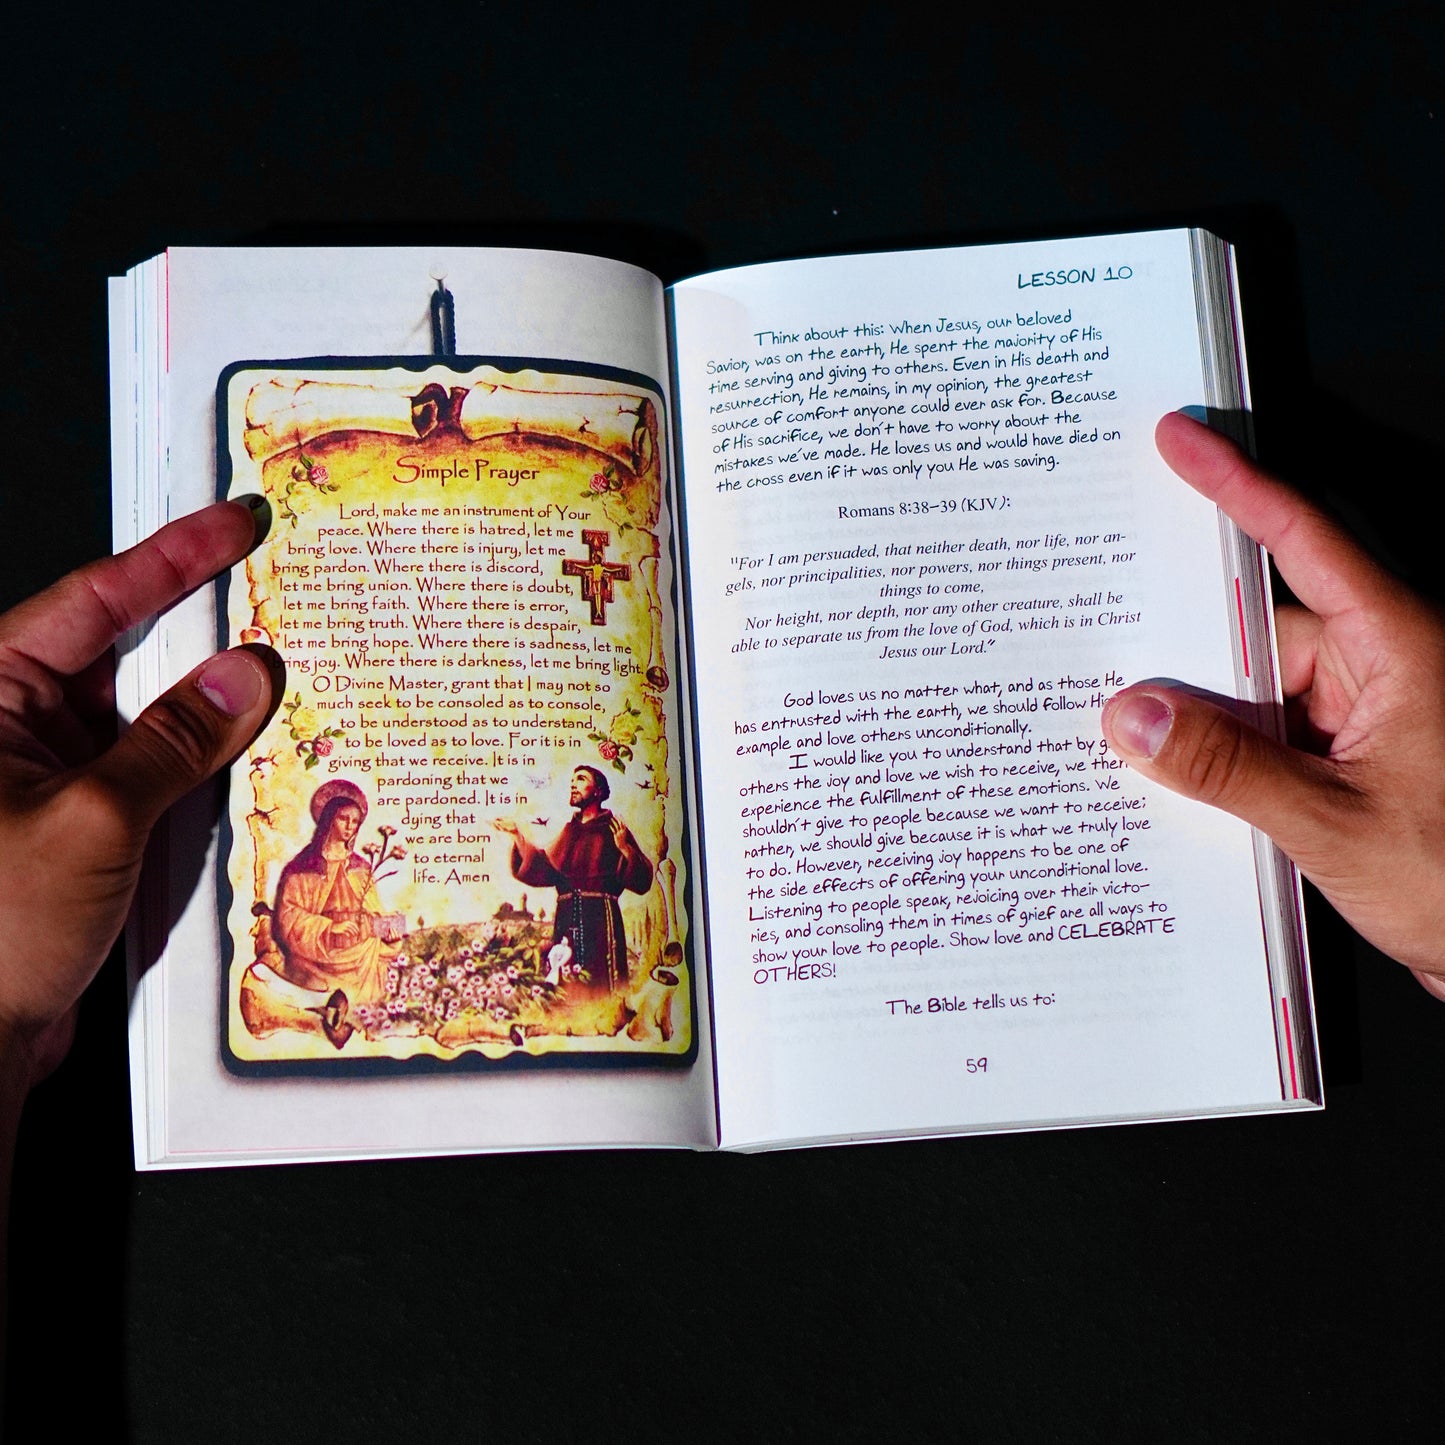 Simple Prayer
Lord, make me an instrument of Your
peace. Where there is hatred, let me
bring love. Where there is injury, let me
bring pardon. Where there is discord,
let me bring union. Where there is doubt,
let me bring faith. Where there is error,
let me bring truth. Where there is despair,
let me bring hope. Where there is sadness, let me
bring joy. Where there is darkness, let me bring light.
O Divine Master, grant that I may not so
much seek to be consoled as to console,
to be understood as to understand,
to be loved as to love. For it is in
giving that we receive. It is in
pardoning that we
are pardoned. It is in
dying that
we are born
to eternal
life. Amen
LESSON 10
Think about this: When Jesus, our beloved
Savior, was on the earth, He spent the majority of His
time serving and giving to others. Even in His death and
resurrection, He remains, in my opinion, the greatest
source of comfort anyone could ever ask for. Because
of His sacrifice, we don't have to worry about the
mistakes we've made. He loves us and would have died on
the cross even if it was only you He was saving.
Romans 8:38–39 (KJV):
"For I am persuaded, that neither death, nor life, nor an-
gels, nor principalities, nor powers, nor things present, nor
things to come,
Nor height, nor depth, nor any other creature, shall be
able to separate us from the love of God, which is in Christ
Jesus our Lord."
God loves us no matter what, and as those He
has entrusted with the earth, we should follow
example and love others unconditionally.
I would like you to understand that by
others the joy and love we wish to receive, we then
experience the fulfillment of these emotions. We
shouldn't give to people because we want to receive;
rather, we should give because it is what we truly love
to do. However, receiving joy happens to be one of
the side effects of offering your unconditional love.
Listening to people speak, rejoicing over their victo-
ries, and consoling them in times of grief are all ways to
show your love to people. Show love and CELEBRATE
OTHERS!
The Bible tells us to:
59